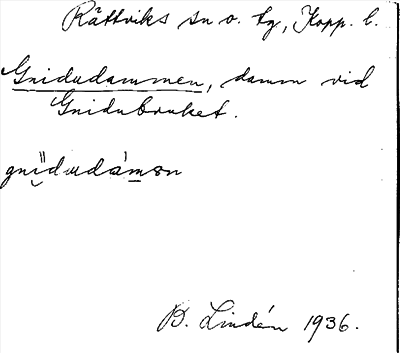 Rättviks sn o. tg, Kopp. l.
Gnidudammen, damm vid
Gnidubruket.
gnı̋dudám̲ən
B. Lindén 1936.